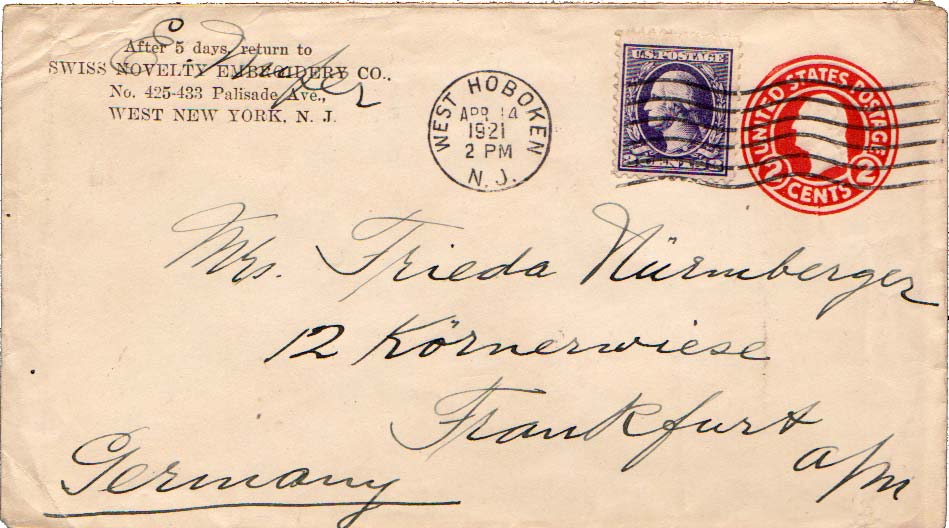 After 5 days, return to
SWISS NOVELTY EMBROIDERY CO.,
No. 425-433 Palisade Ave.,
WEST NEW YORK, N. J.
WEST HOBOKEN
APR 14
1921
2 PM
N. J.
U.S. POSTAGE
UNITED STATES POSTAGE
2 CENTS 2
Mrs. Frieda Nürmberger
12 Körnerwiese
Frankfurt
a/m
Germany